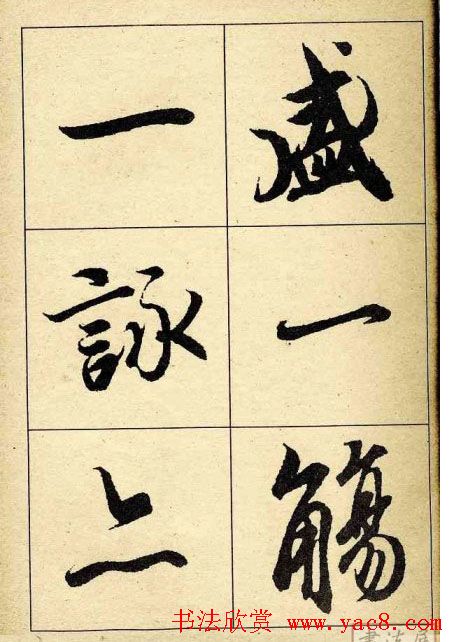 盛一觴
一詠亦
书法欣赏 www.yac8.com